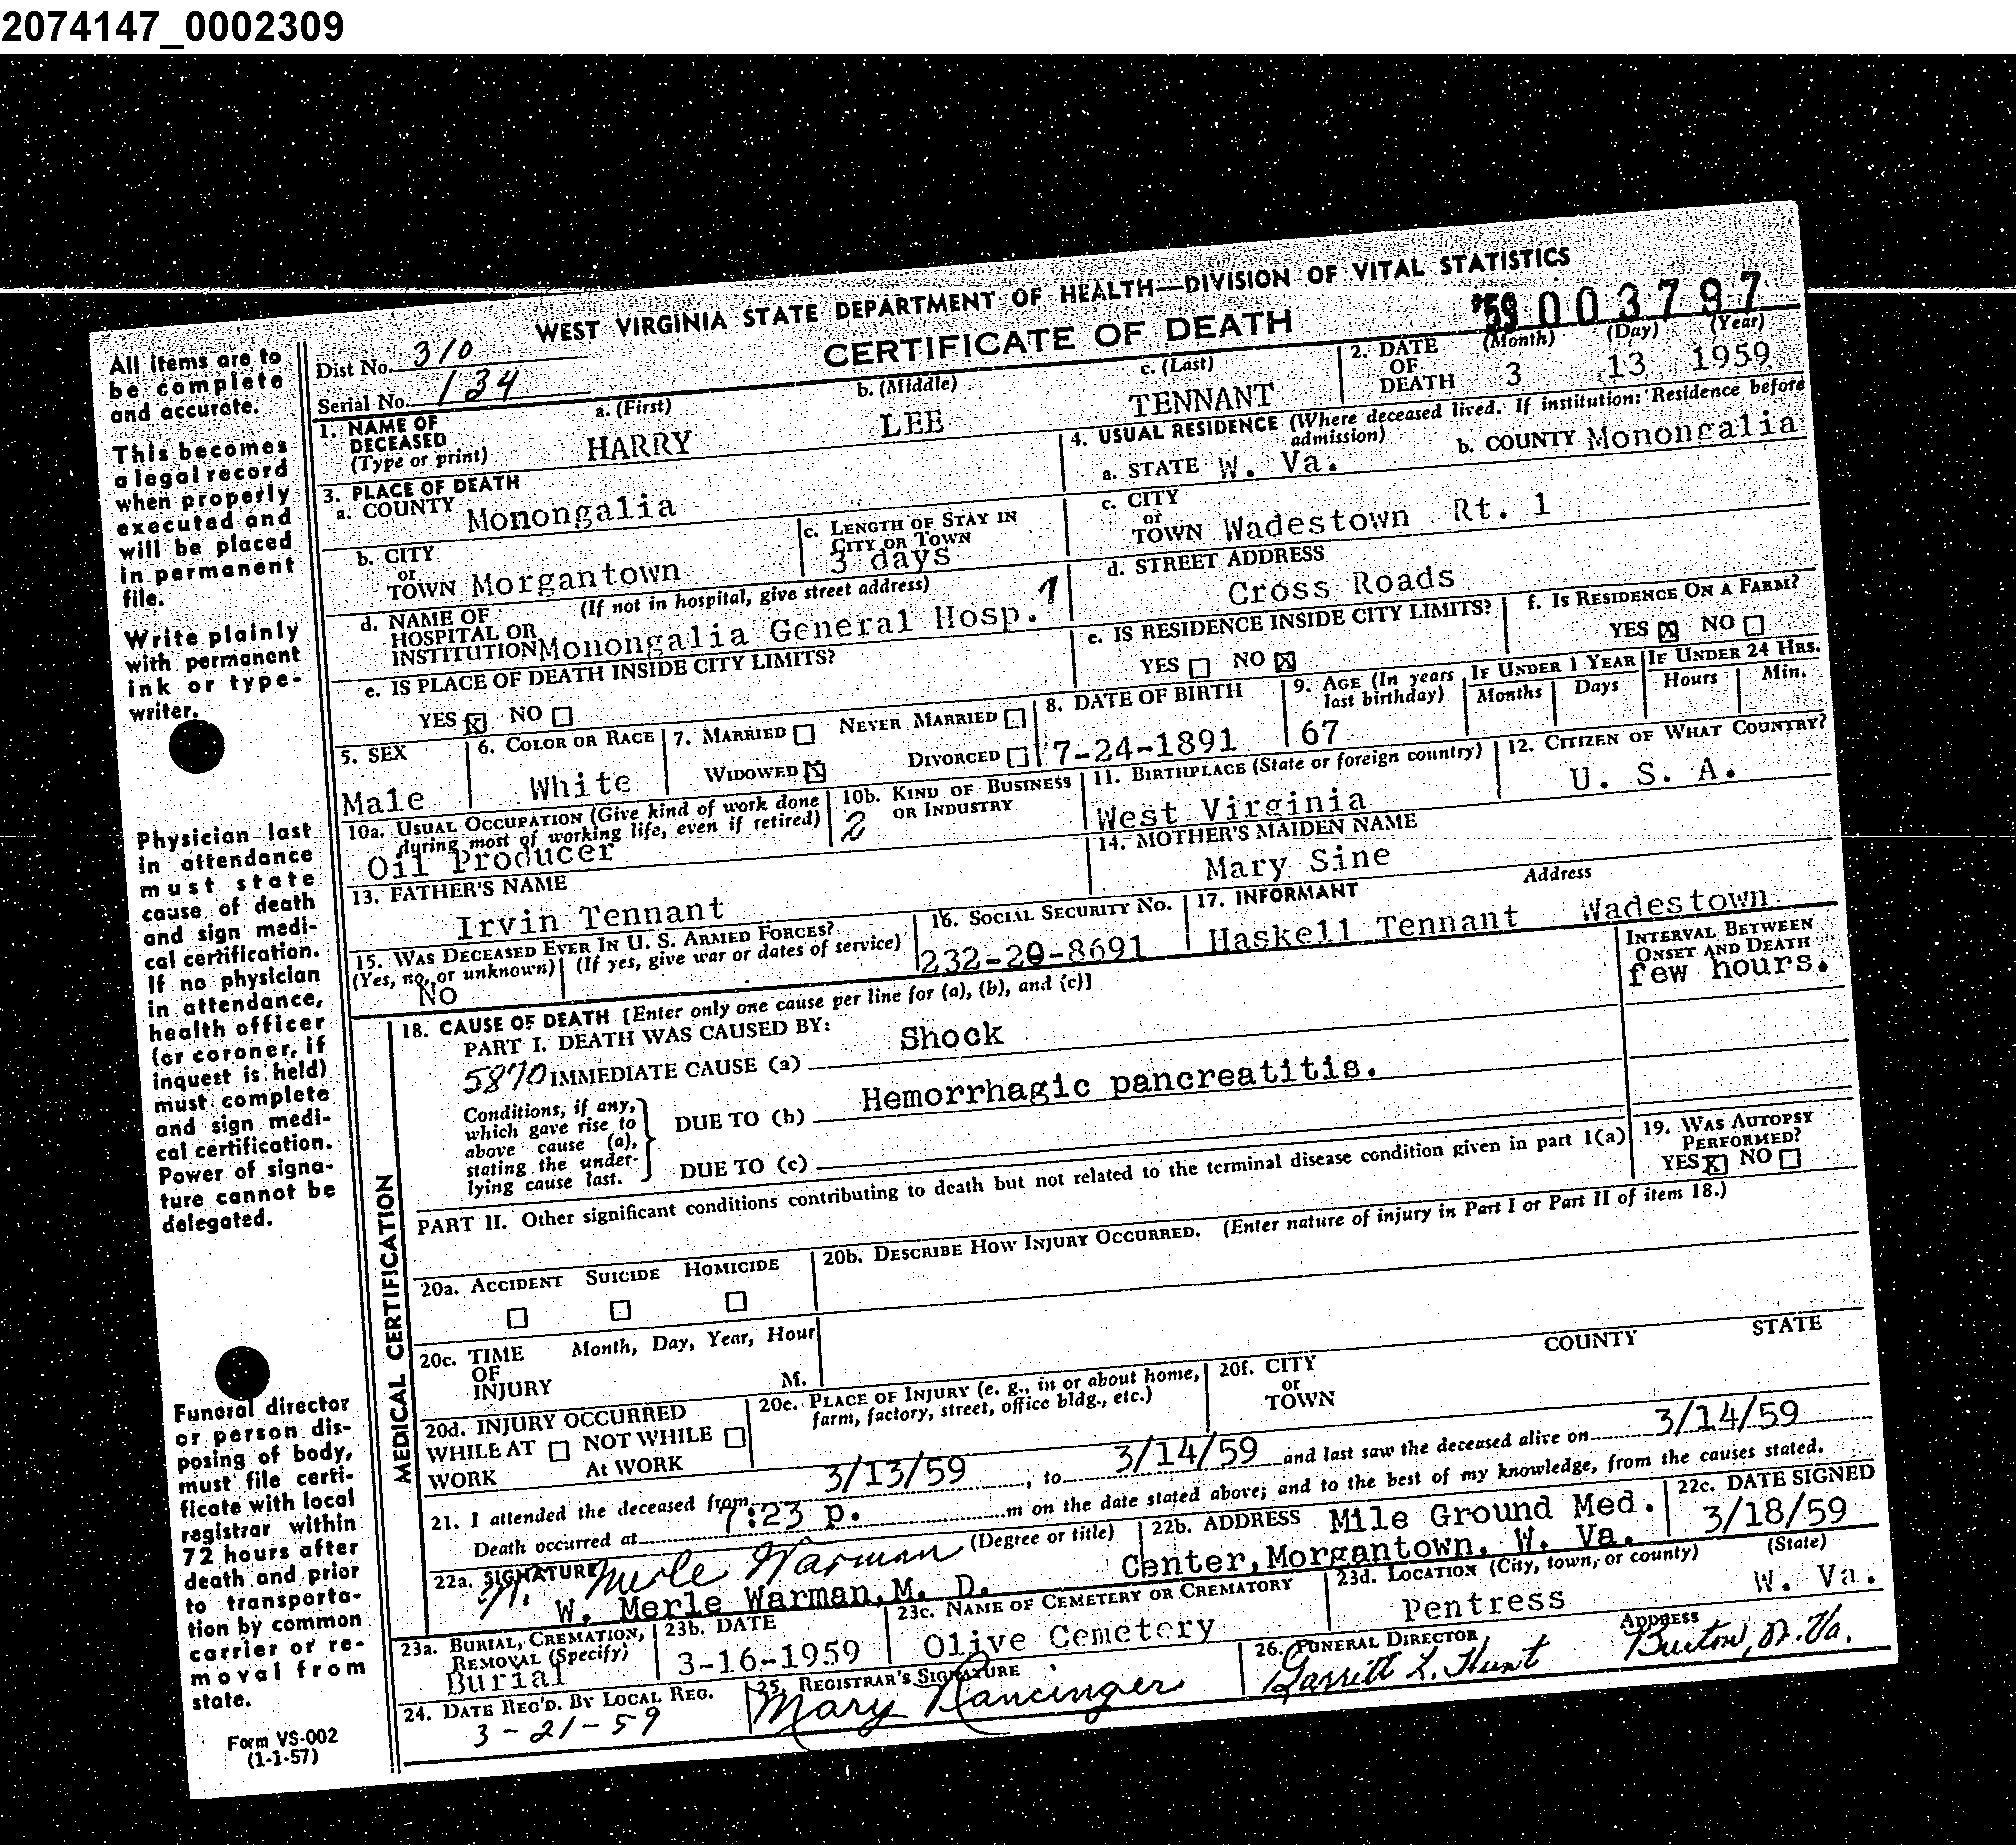 2074147_0002309
WEST VIRGINIA STATE DEPARTMENT OF HEALTH—DIVISION OF VITAL STATISTICS
CERTIFICATE OF DEATH
'59 003797
Dist No. 310
Serial No. 134
All items are to
be complete
and accurate.
This becomes
a legal record
when properly
executed and
will be placed
in permanent
file.
Write plainly
with permanent
ink or type-
writer.
Physician last
in attendance
must state
cause of death
and sign medi-
cal certification.
If no physician
in attendance,
health officer
(or coroner, if
inquest is held)
must complete
and sign medi-
cal certification.
Power of signa-
ture cannot be
delegated.
Funeral director
or person dis-
posing of body,
must file certi-
ficate with local
registrar within
72 hours after
death and prior
to transporta-
tion by common
carrier or re-
moval from
state.
Form VS-002
(1-1-57)
1. NAME OF DECEASED (Type or print) a. (First) HARRY b. (Middle) LEE c. (Last) TENNANT
2. DATE OF DEATH (Month) 3 (Day) 13 (Year) 1959
3. PLACE OF DEATH
a. COUNTY Monongalia
b. CITY or TOWN Morgantown
c. LENGTH OF STAY IN CITY OR TOWN 3 days
d. NAME OF HOSPITAL OR INSTITUTION (If not in hospital, give street address) Monongalia General Hosp. 1
e. IS PLACE OF DEATH INSIDE CITY LIMITS?
YES X NO
4. USUAL RESIDENCE (Where deceased lived. If institution: Residence before admission)
a. STATE W. Va. b. COUNTY Monongalia
c. CITY or TOWN Wadestown Rt. 1
d. STREET ADDRESS Cross Roads
e. IS RESIDENCE INSIDE CITY LIMITS?
YES NO X
f. IS RESIDENCE ON A FARM?
YES X NO
5. SEX Male
6. COLOR OR RACE White
7. MARRIED NEVER MARRIED
WIDOWED X DIVORCED
8. DATE OF BIRTH 7-24-1891
9. AGE (In years last birthday) 67
IF UNDER 1 YEAR Months Days
IF UNDER 24 HRS. Hours Min.
10a. USUAL OCCUPATION (Give kind of work done during most of working life, even if retired) Oil Producer
10b. KIND OF BUSINESS OR INDUSTRY 2
11. BIRTHPLACE (State or foreign country) West Virginia
12. CITIZEN OF WHAT COUNTRY? U. S. A.
13. FATHER'S NAME Irvin Tennant
14. MOTHER'S MAIDEN NAME Mary Sine
15. WAS DECEASED EVER IN U. S. ARMED FORCES?
(Yes, no, or unknown) (If yes, give war or dates of service)
No
16. SOCIAL SECURITY NO. 232-20-8691
17. INFORMANT Haskell Tennant Address Wadestown
MEDICAL CERTIFICATION
18. CAUSE OF DEATH [Enter only one cause per line for (a), (b), and (c)]
INTERVAL BETWEEN ONSET AND DEATH few hours.
PART I. DEATH WAS CAUSED BY:
5870 IMMEDIATE CAUSE (a) Shock
Conditions, if any, which gave rise to above cause (a), stating the under-lying cause last.
DUE TO (b) Hemorrhagic pancreatitis.
DUE TO (c)
PART II. Other significant conditions contributing to death but not related to the terminal disease condition given in part I(a)
19. WAS AUTOPSY PERFORMED?
YES X NO
20a. ACCIDENT SUICIDE HOMICIDE
20b. DESCRIBE HOW INJURY OCCURRED. (Enter nature of injury in Part I or Part II of item 18.)
20c. TIME OF INJURY Month, Day, Year, Hour M.
20d. INJURY OCCURRED
WHILE AT WORK NOT WHILE At WORK
20e. PLACE OF INJURY (e. g., in or about home, farm, factory, street, office bldg., etc.)
20f. CITY or TOWN COUNTY STATE
21. I attended the deceased from 3/13/59, to 3/14/59 and last saw the deceased alive on 3/14/59
Death occurred at 7:23 p. m on the date stated above; and to the best of my knowledge, from the causes stated.
22a. SIGNATURE W. Merle Warman (Degree or title)
W. Merle Warman, M. D.
22b. ADDRESS Mile Ground Med.
Center, Morgantown, W. Va.
22c. DATE SIGNED 3/18/59
23a. BURIAL, CREMATION, REMOVAL (Specify) Burial
23b. DATE 3-16-1959
23c. NAME OF CEMETERY OR CREMATORY Olive Cemetery
23d. LOCATION (City, town, or county) (State)
Pentress W. Va.
24. DATE REC'D. BY LOCAL REG. 3-21-59
25. REGISTRAR'S SIGNATURE Mary
26. FUNERAL DIRECTOR Garrett L. Hunt ADDRESS Burton, W. Va.